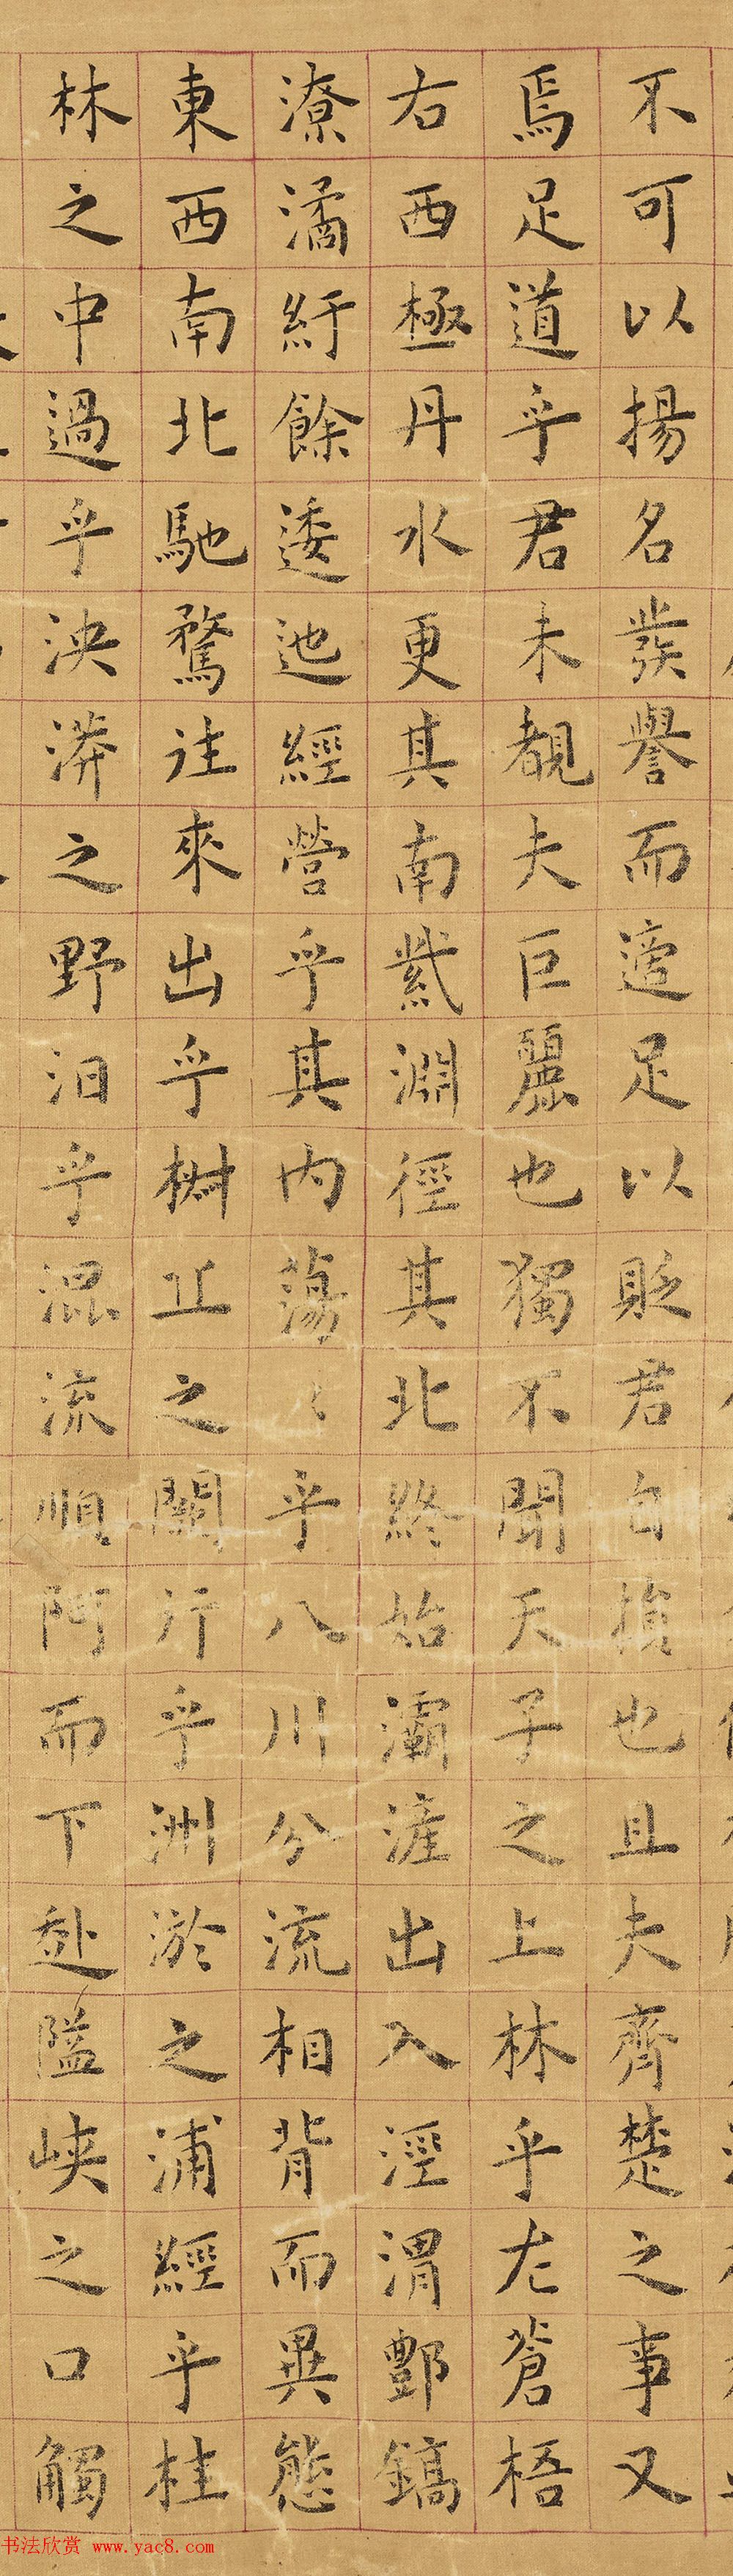 不可以揚名發譽而適足以貶君自損也且夫齊楚之事又
焉足道乎君未覩夫巨麗也獨不聞天子之上林乎左蒼梧
右西極丹水更其南紫淵徑其北終始灞滻出入涇渭酆鎬
潦潏紆餘逶迤經營乎其內蕩〻乎八川分流相背而異態
東西南北馳騖往來出乎椒丘之闕行乎洲淤之浦經乎桂
林之中過乎泱漭之野汨乎混流順阿而下赴隘峽之口觸
书法欣赏 www.yac8.com